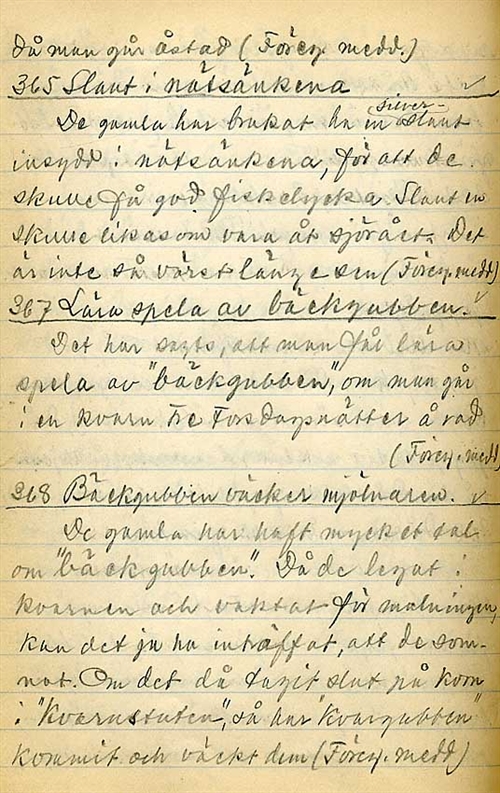 då man går åstad (Föreg. medd.)
365 Slant i nätsänkena
De gamla har brukat ha en silver-slant
insydd i nätsänkena, för att de
skulle få god fiskelycka. Slanten
skulle likasom vara åt sjörået. Det
är inte så värst länge sen (Föreg. medd)
367 Lära spela av bäckgubben.
Det har sagts, att man får lära
spela av "bäckgubben," om man går
i en kvarn tre Torsdagsnätter å rad
(Föreg. medd)
368 Bäckgubben väcker mjölnaren.
De gamla har haft mycket tal
om "bäckgubben". Då de legat i
kvarnen och vaktat för malningen,
kan det ju ha inträffat, att de som-
nat. Om det då tagit slut på korn
i "kvarnstuten", så har "kvargubben"
kommit och väckt dem (Föreg. medd)